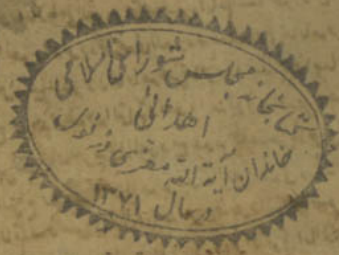 کتابخانه مجلس شورای اسلامی
اهدائی
خاندان آیة الله مرتضی
در سال ۱۳۷۱